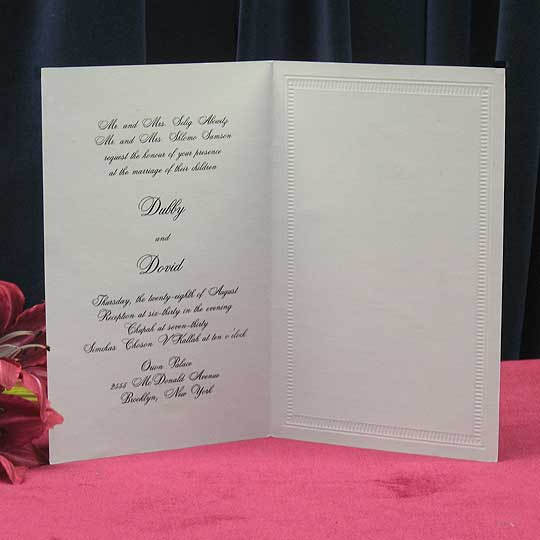 Mr. and Mrs. Selig Alowitz
Mr. and Mrs. Shlomo Samson
request the honour of your presence
at the marriage of their children
Dubby
and
Dovid
Thursday, the twenty-eighth of August
Reception at six-thirty in the evening
Chupah at seven-thirty
Simchas Choson V'Kallah at ten o'clock
Orion Palace
2555 McDonald Avenue
Brooklyn, New York